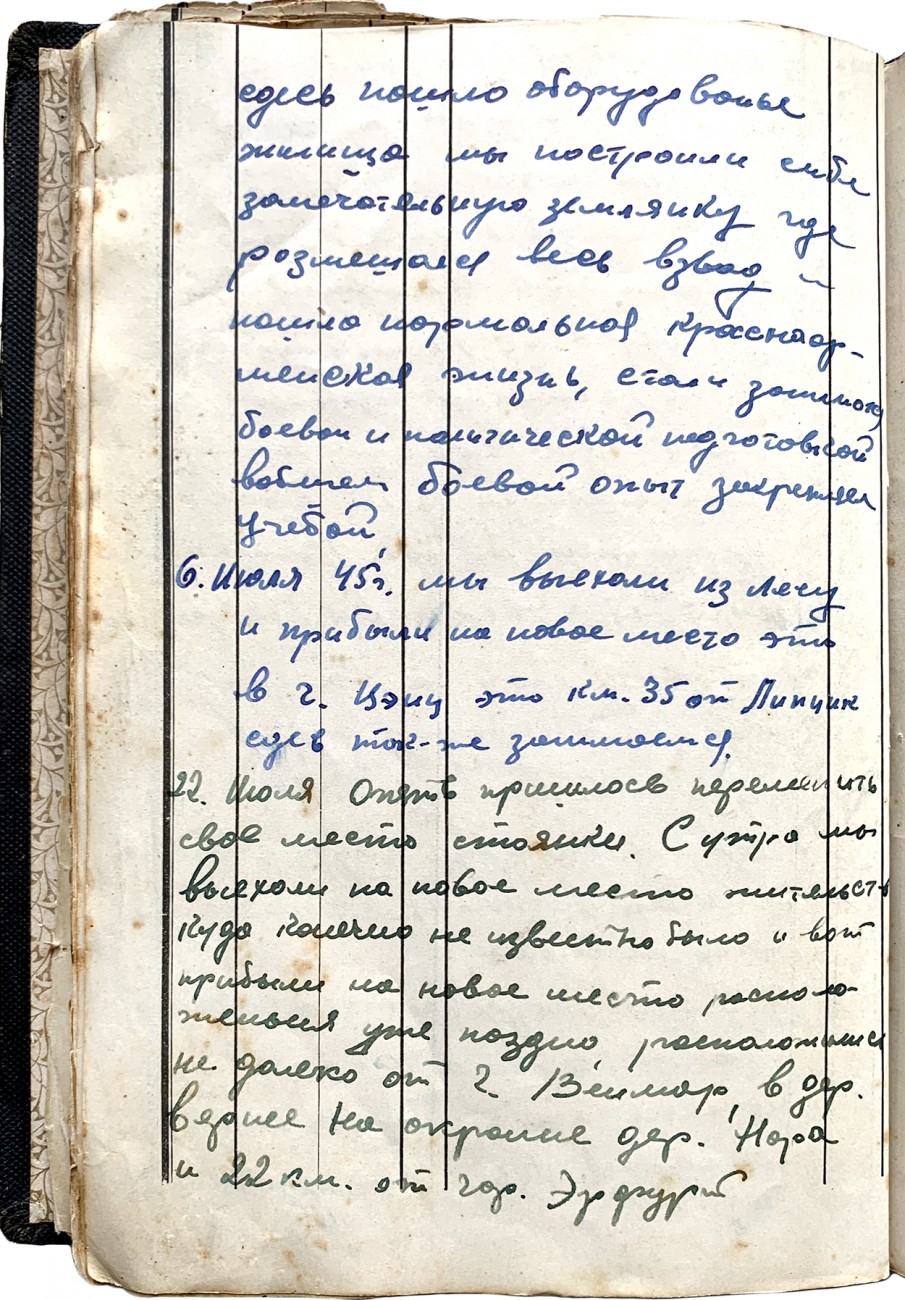 здесь пошло оборудованье
жилища мы построили себе
замечательную землянку где
розмещался весь взвод и
пошла нормальная красноар-
мейская жизнь, стали заниматся
боевой и политической подготовкой
вобщем боевой опыт закрепляем
учебой,
6. Июля 45г. мы выехали из лесу
и прибыли на новое место это
в г. Цэиц это км. 35 от Липцик
здесь так-же занимаемся.
22. Июля Опять пришлось переменить
своё место стоянки. С утра мы
выехали на новое место жительств
куда конечно не известно было и вот
прибыли на новое место располо-
женыия уже поздно, расположились
не далеко от г. Веймар в дер.
вернее на окраине дер. "Нора
и 22 км. от гор. Эрфурт